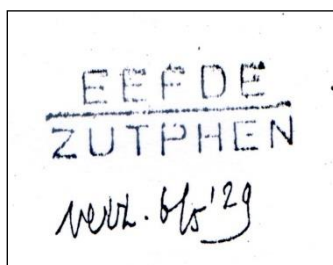 EEFDE
ZUTPHEN
verz. 6/5 '29